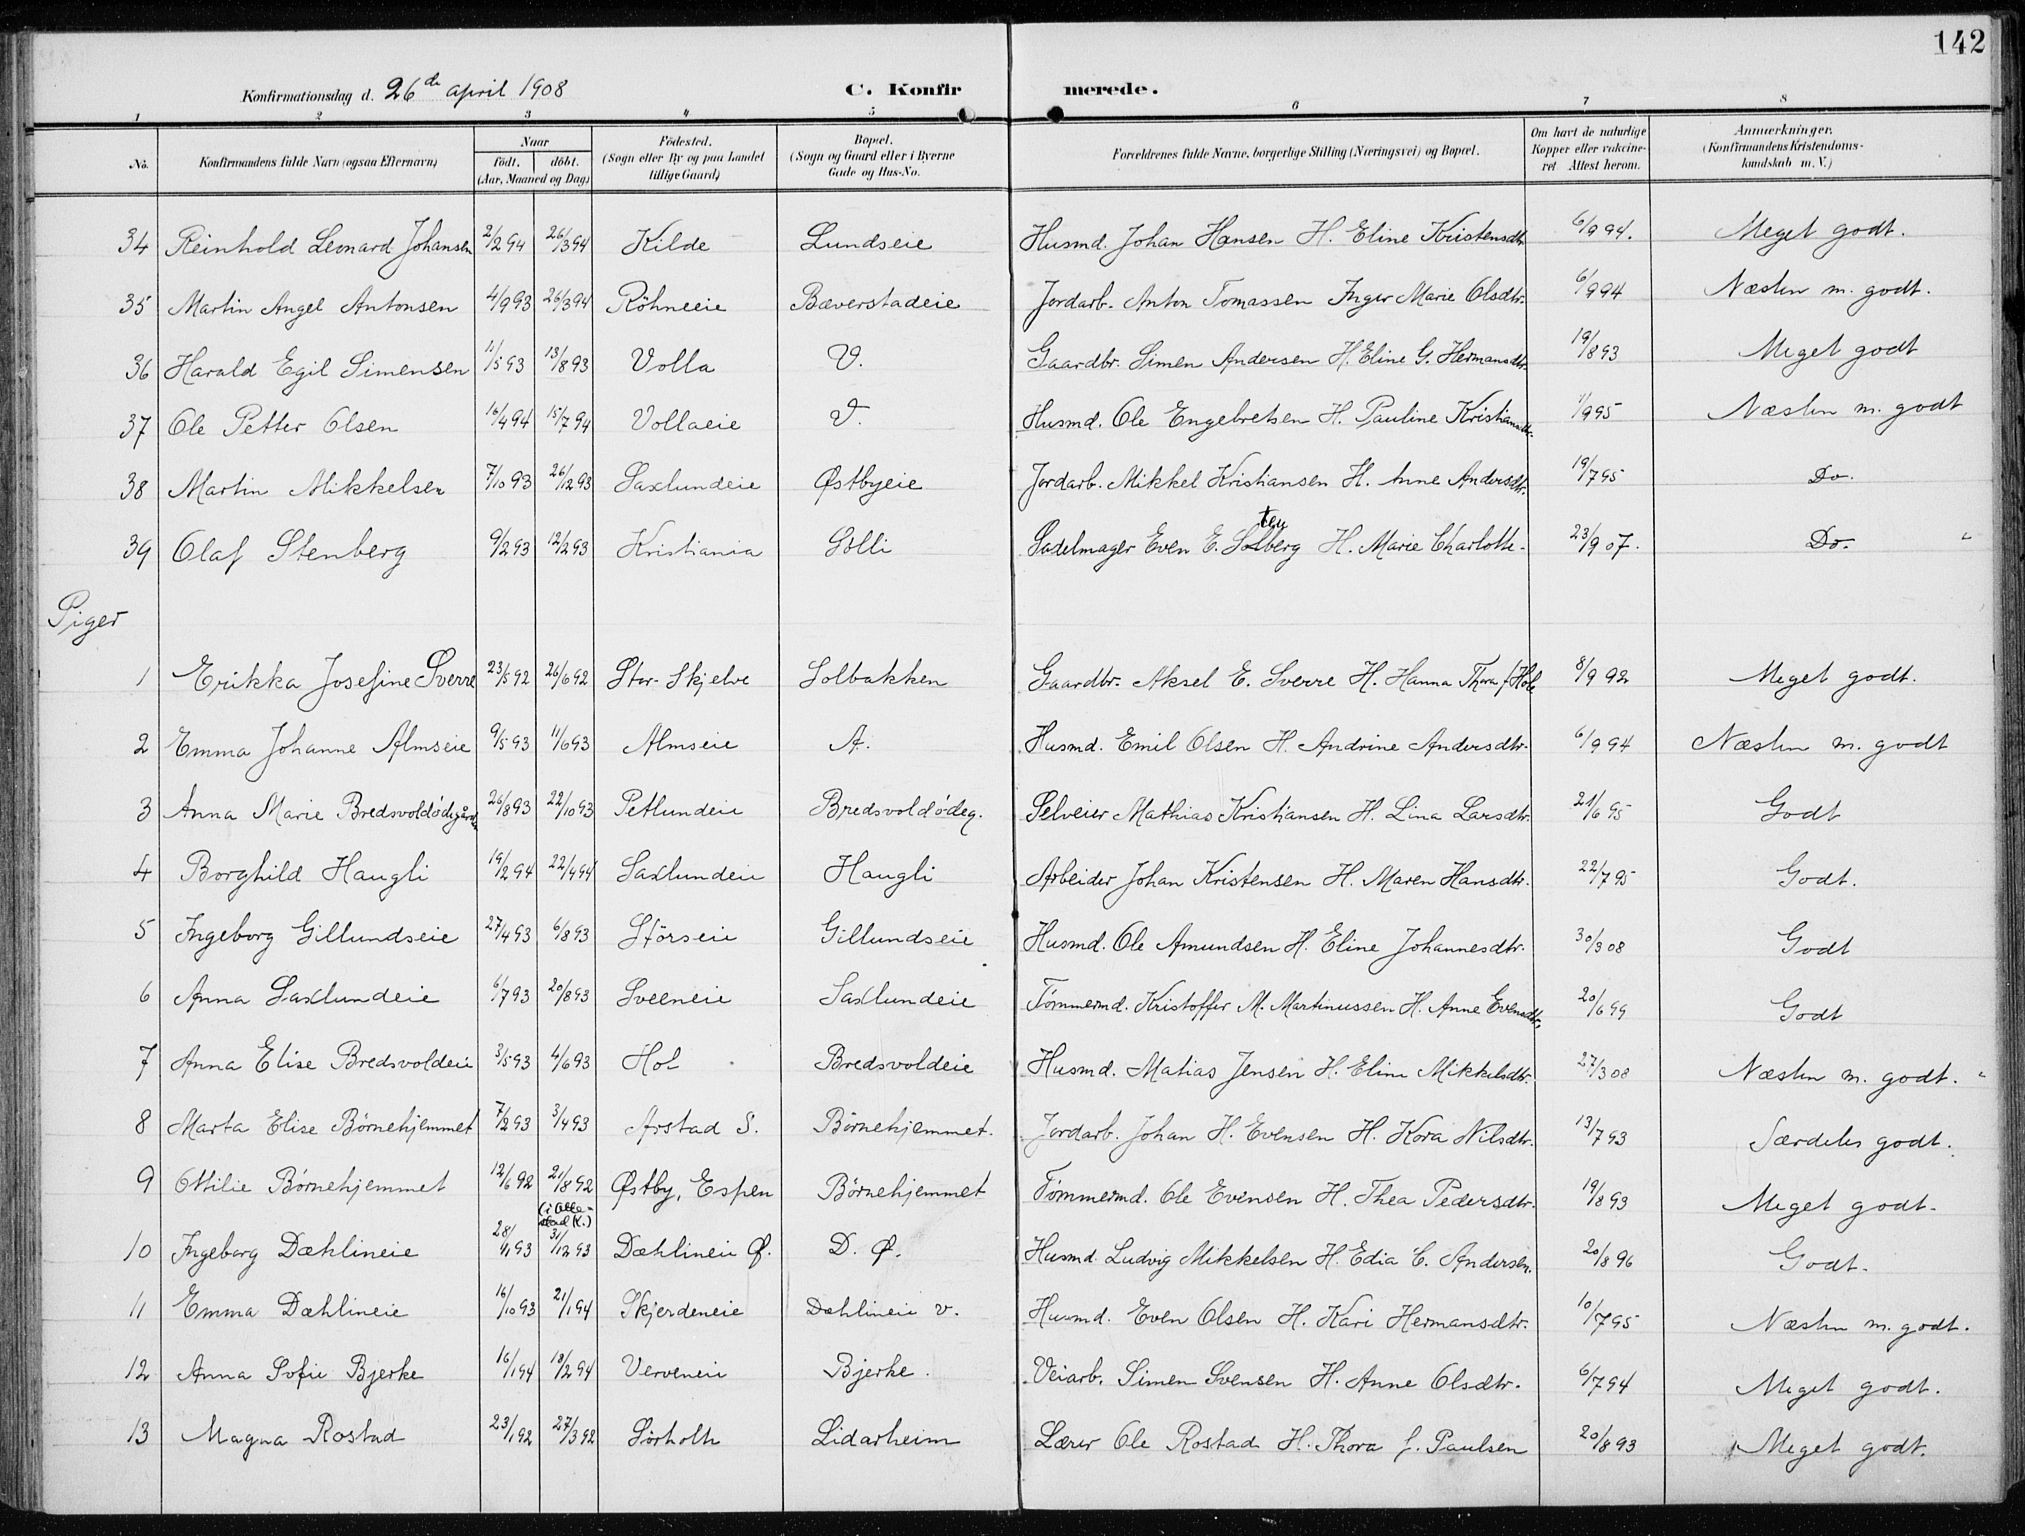 142
Konfirmationsdag d. 26de april 1908 C. Konfirmerede.
1 2 3 4 5 6 7 8
No. Konfirmandens fulde Navn (ogsaa Efternavn) Naar født. døbt. (Aar, Maaned og Dag) Fødested. (Sogn eller By og paa Landet tillige Gaard) Bopæl. (Sogn og Gaard eller i Byerne Gade og Hus-No. Forældrenes fulde Navne, borgerlige Stilling (Næringsvei) og Bopæl. Om havt de naturlige Kopper eller vakcineret Attest herom. Anmærkninger. (Konfirmandens Kristendomskundskab m. V.)
34 Reinhold Leonard Johansen 2/2 94 26/3 94 Kilde Lundseie Husmd. Johan Hansen H. Eline Kristensdtr 6/9 94. Meget godt.
35 Martin Angel Antonsen 4/9 93 26/3 94 Røhneeie Bæverstadeie Jordarb. Anton Tomassen Inger Marie Olsdtr. 6/9 94 Næsten m. godt.
36 Harald Egil Simensen 11/5 93 13/8 93 Volla V. Gaardbr. Simen Andersen H. Eline G. Hermansdtr. 19/8 93 Meget godt
37 Ole Petter Olsen 16/4 94 15/7 94 Vollaeie V. Husmd. Ole Engebretsen H. Pauline Kristiansdtr. 1/9 95 Næsten m. godt
38 Martin Mikkelsen 7/10 93 26/12 93 Saxlundeie Østbyeie Jordarb. Mikkel Kristiansen H. Anne Andersdtr. 19/7 95 Do.
39 Olaf Stenberg 9/2 93 12/2 93 Kristiania Solli Sadelmager Even E. Stenberg H. Marie Charlotte. 23/9 07. Do. "
Piger
1 Erikka Josefine Sverre 23/5 92 26/6 92 Stor-Skjelve Solbakken Gaardbr. Aksel E. Sverre H. Hanna Thora f. Hole 8/9 92 Meget godt.
2 Emma Johanne Almseie 9/5 93 11/6 93 Almseie A. Husmd. Emil Olsen H. Andrine Andersdtr. 6/9 94 Næsten m. godt
3 Anna Marie Bredsvoldødegården 26/8 93 22/10 93 Petlundeie Bredsvoldødeg. Selveier Mathias Kristiansen H. Lina Larsdtr. 21/6 95 Godt
4 Borghild Haugli 19/2 94 22/4 94 Saxlundeie Haugli Arbeider Johan Kristensen H. Maren Hansdtr. 22/7 95 Godt.
5 Ingeborg Gillundseie 27/4 93 6/8 93 Størseie Gillundseie Husmd. Ole Amundsen H. Eline Johannesdtr. 30/3 08 Godt
6 Anna Saxlundeie 6/7 93 20/8 93 Sveeneie Saxlundeie Tømmermd. Kristoffer M. Martinussen H. Anne Evensdtr. 20/6 99 Godt
7 Anna Elise Bredsvoldeie 3/5 93 4/6 93 Hol Bredsvoldeie Husmd. Matias Jensen H. Eline Mikkelsdtr. 27/3 08 Næsten m. godt. "
8 Marta Elise Børnehjemmet 7/2 93 3/4 93 Arstad S. Børnehjemmet. Jordarb. Johan H. Evensen H. Kora Nilsdtr. 13/7 93 Særdeles godt.
9 Ottilie Børnehjemmet 12/6 92 21/8 92 Østby, Espen Børnehjemmet Tømmermd. Ole Evensen H. Thea Pedersdtr. 19/8 93 Meget godt.
10 Ingeborg Dæhlineie 28/1 93 3/12 93 Dæhlineie Ø. D. Ø. Husmd. Ludvig Mikkelsen H. Edia C. Andersen. 20/8 96 Godt.
11 Emma Dæhlineie 16/10 93 21/1 94 Skjerdeneie Dæhlineie v. Husmd. Even Olsen H. Kari Hermansdtr. 10/7 95 Næsten m. godt.
12 Anna Sofie Bjerke 16/1 94 18/2 94 Verveneie Bjerke. Veiarb. Simen Svensen H. Anne Olsdtr. 6/7 94 Meget godt.
13 Magna Rostad 23/1 92 27/3 92 Sørholte Lidarheim Lærer Ole Rostad H. Thora f. Paulsen 20/8 93 Meget godt.